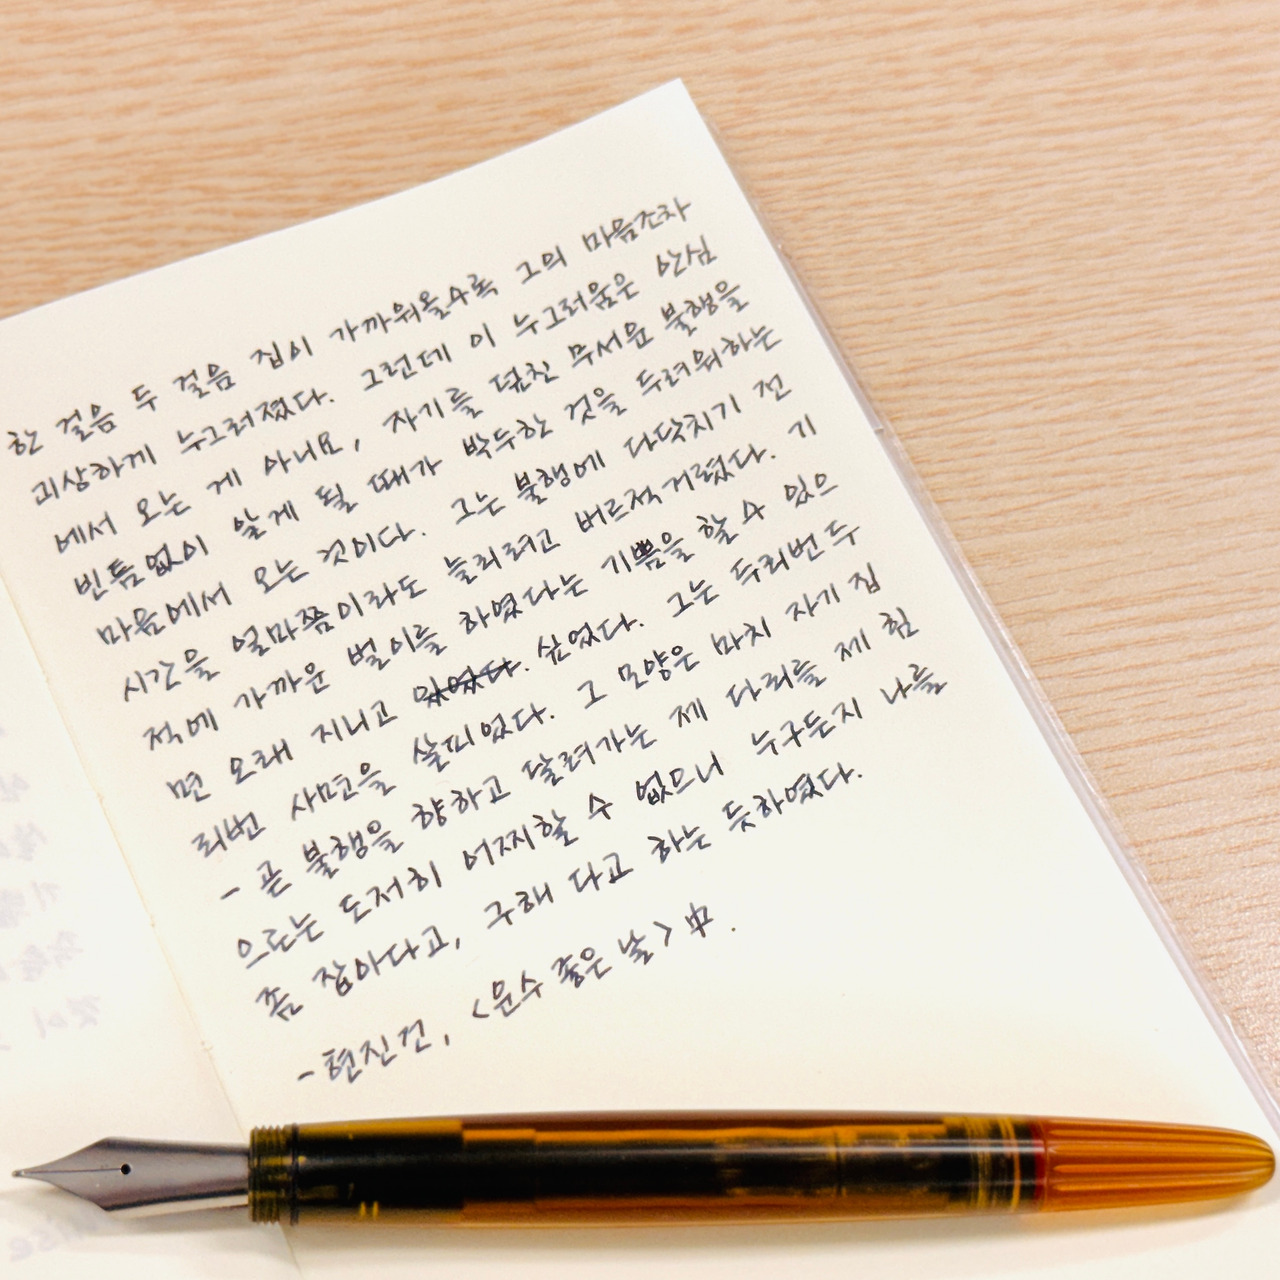 한 걸음 두 걸음 집이 가까워올수록 그의 마음조차
괴상하게 누그러졌다. 그런데 이 누그러움은 안심
에서 오는 게 아니요, 자기를 덮친 무서운 불행을
빈틈없이 알게 될 때가 박두한 것을 두려워하는
마음에서 오는 것이다. 그는 불행에 다닥치기 전
시간을 얼마쯤이라도 늘리려고 버르적거렸다. 기
적에 가까운 벌이를 하였다는 기쁨을 할 수 있으
면 오래 지니고 싶었다. 그는 두리번 두
리번 사면을 살피었다. 그 모양은 마치 자기 집
- 곧 불행을 향하고 달려가는 제 다리를 제 힘
으로는 도저히 어찌할 수 없으니 누구든지 나를
좀 잡아다고, 구해 다고 하는 듯하였다.
- 현진건, <운수 좋은 날> 中.